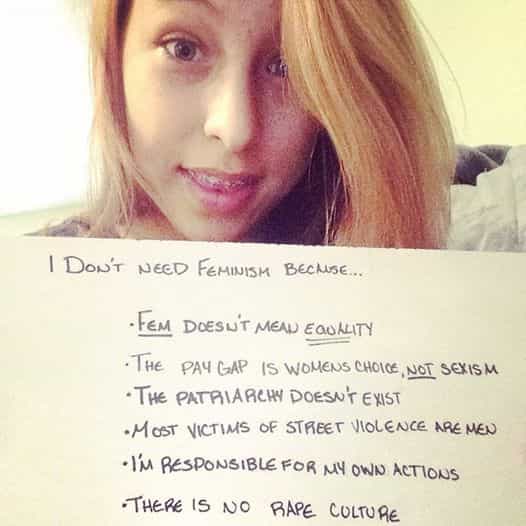 I DON'T NEED FEMINISM BECAUSE...
• FEM DOESN'T MEAN EQUALITY
• THE PAY GAP IS WOMENS CHOICE, NOT SEXISM
• THE PATRIARCHY DOESN'T EXIST
• MOST VICTIMS OF STREET VIOLENCE ARE MEN
• I'M RESPONSIBLE FOR MY OWN ACTIONS
• THERE IS NO RAPE CULTURE